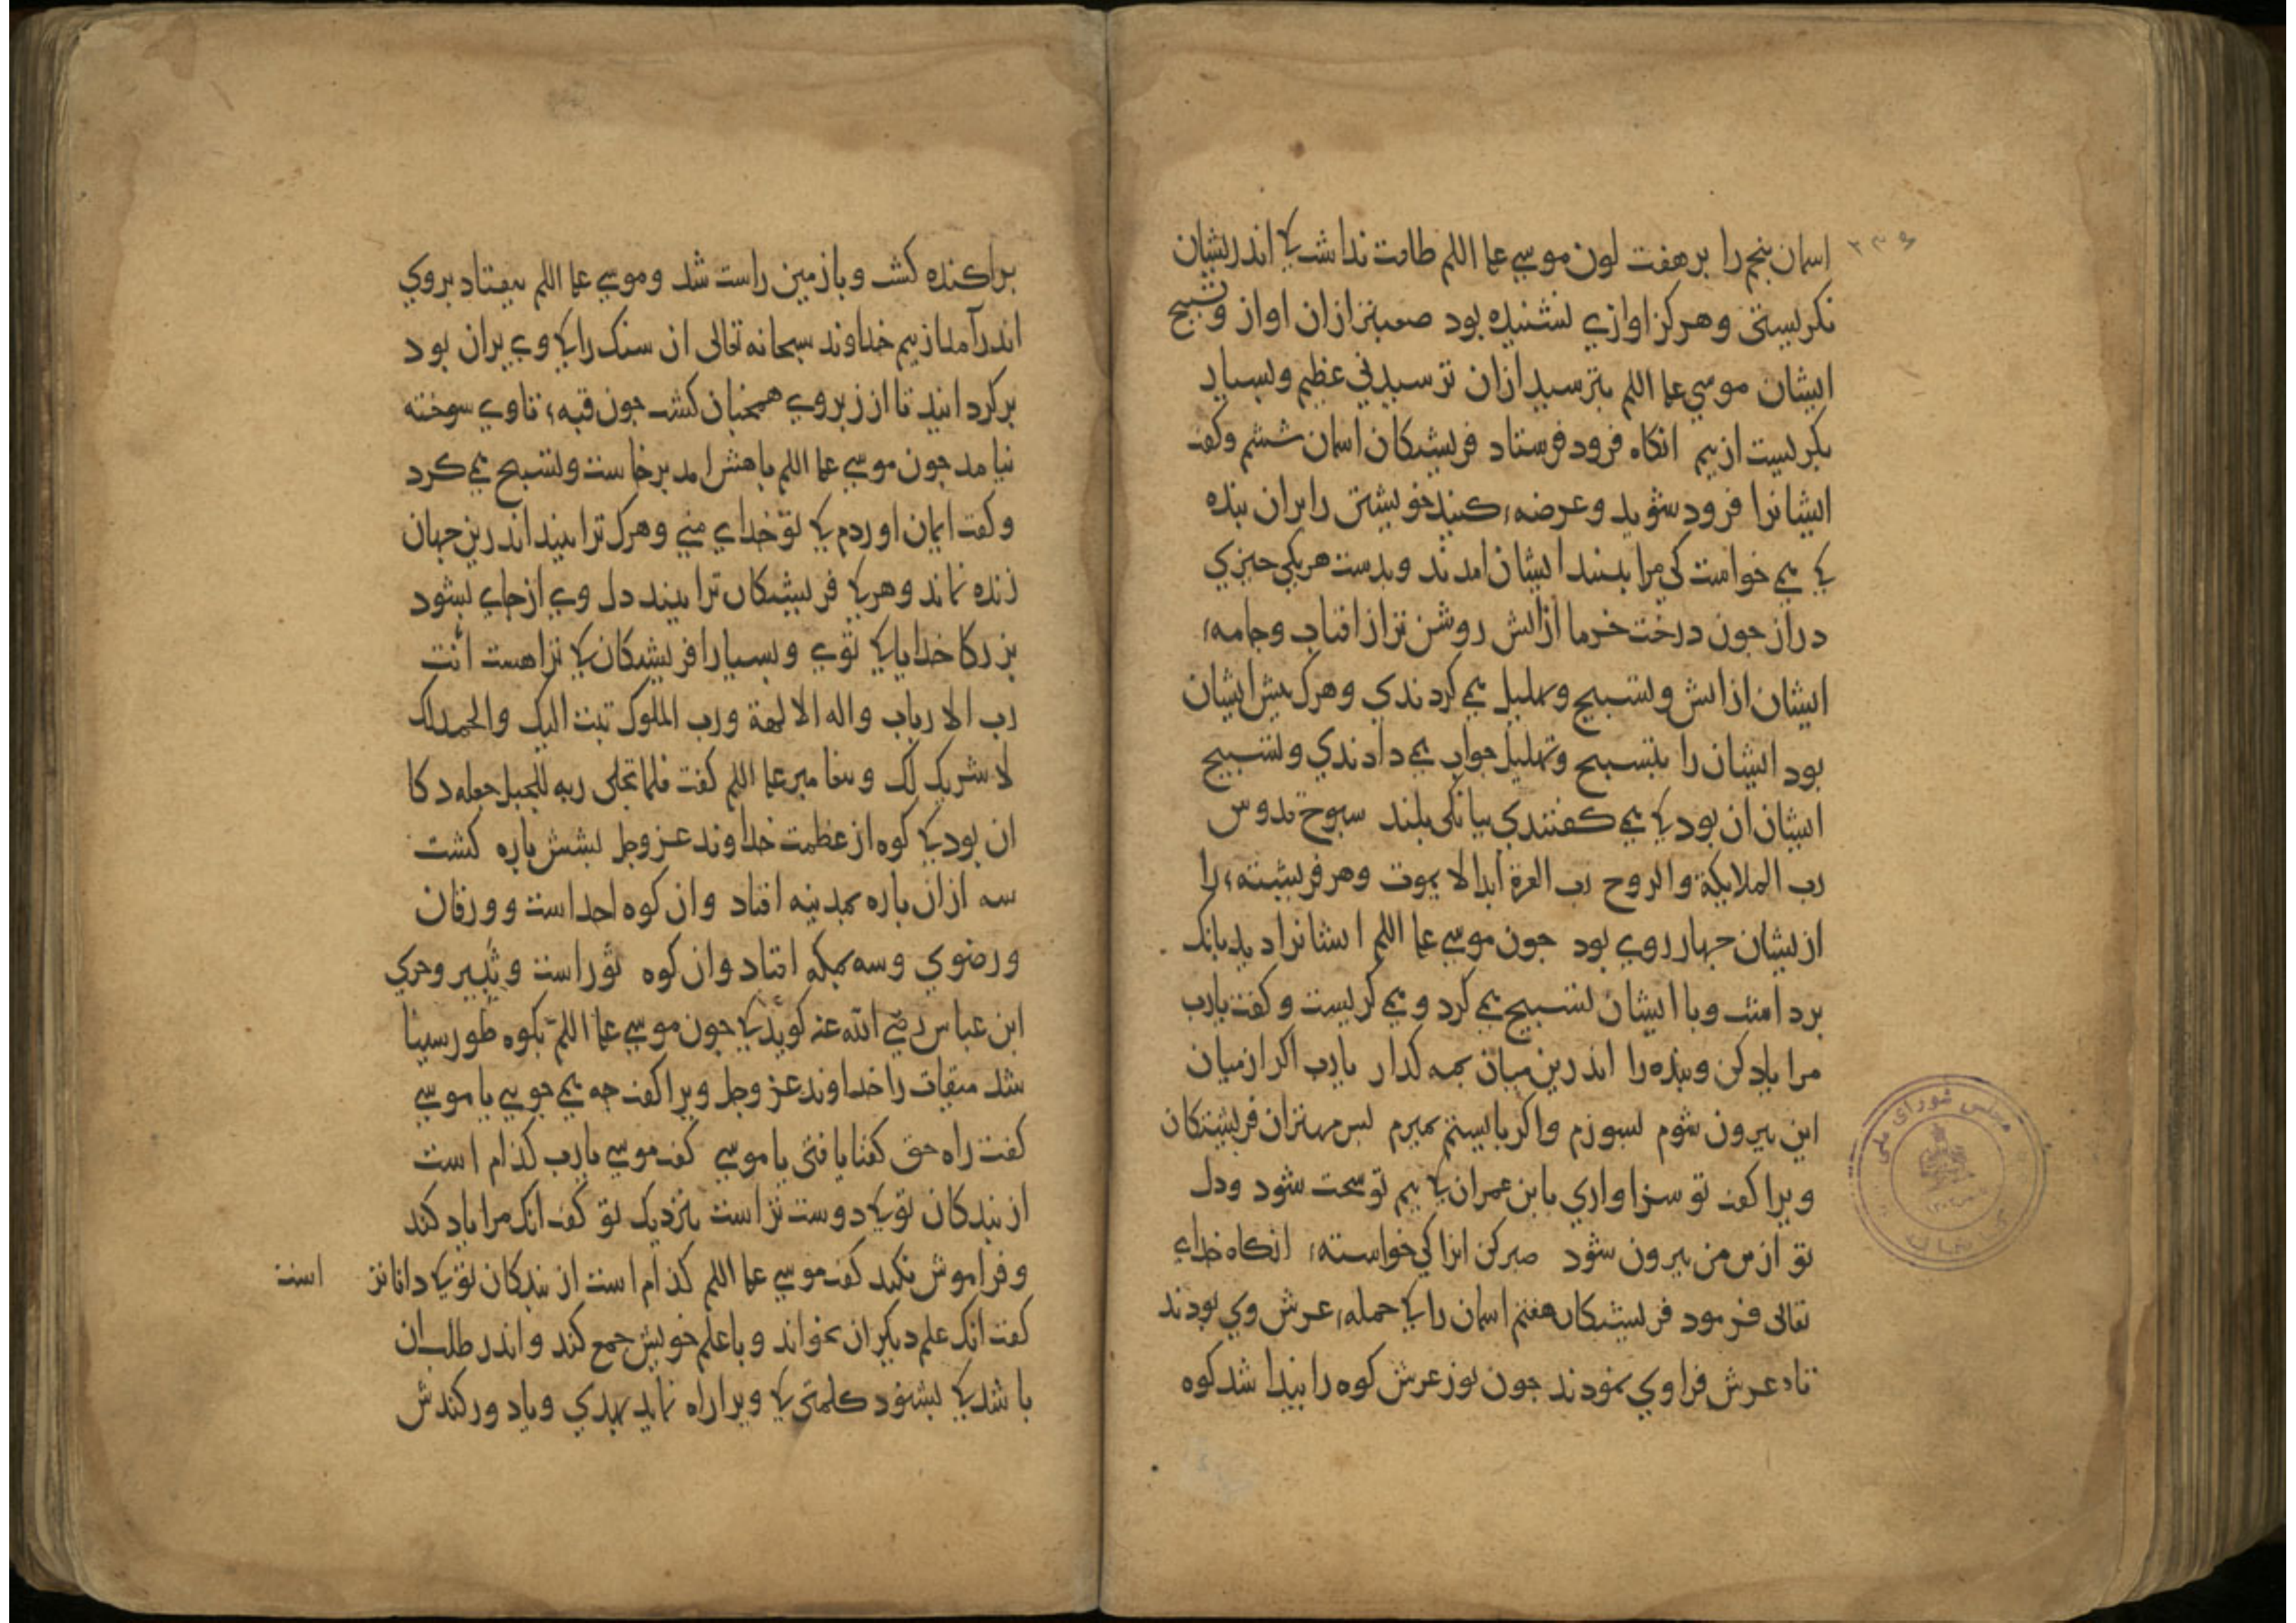 ۲۳۶
اسمان پنجم را بر هفت لون موسی علیه السلم طاقت نداشت کی اندریشان
نکریستی و هرکز اوازی نشنیده بود صعبتر ازان اواز و تسبیح
ایشان موسی علیه السلم بترسید ازان ترسیدنی عظیم و بسیار
بکریست از بیم انکاه فرود فرستاد فریشتکان اسمان ششم و کفت
ایشانرا فرود شوید و عرضه کنید خویشتن را بران بنده
کی می خواست کی مرا بیند ایشان امدند و بدست هر یکی چیزی
دراز جون درخت خرما ازاتش روشن تر از افتاب و جامهء
ایشان از اتش و تسبیح و تهلیل می کردندی و هرک پیش ایشان
بود ایشان را بتسبیح و تهلیل جواب می دادندی و تسبیح
ایشان ان بود کی می کفتندی ببانکی بلند سبوح قدوس
رب الملایکة والروح رب العزة ابدا لا یموت و هر فریشتهء را
ازیشان جهار روی بود جون موسی علیه السلم ایشانرا دید بانک
برداشت و با ایشان تسبیح می کرد و می کریست و کفت یا رب
مرا یاد کن و بنده را اندرین میان بمه کذار یا رب اکر از میان
این بیرون شوم بسوزم و اکر بایستم بمیرم بس مهتران فریشتکان
ویرا کفت تو سزاواری یا بن عمران کی بیم تو سخت شود و دل
تو از بر من بیرون شود صبر کن انرا کی خواستهء انکاه خدای
تعالی فرمود فریشتکان هفتم اسمان را کی حملهء عرش وی بودند
تا عرش فرا وی نمودند جون نور عرش کوه را بیدا شد کوه
براکنده کشت و باز زمین راست شد و موسی علیه السلم بیفتاد بروی
اندر آمد از بیم خداوند سبحانه تعالی ان سنک را کی وی بران بود
بر کردانید تا از زبر وی همجنان کشت جون قبهء تا وی سوخته
نیامد جون موسی علیه السلم باهش امد برخاست و تسبیح می کرد
و کفت ایمان اوردم کی تو خدای منی و هرک ترا بیند اندرین جهان
زنده نماند و هر کی فریشتکان ترا بیند دل وی از جای بشود
بزرکا خدایا کی توی و بسیارا فریشتکان کی تراهست انت
رب الارباب و اله الالهة و رب الملوک تبت الیک والحمد لک
لا شریک لک و بیغامبر علیه السلم کفت فلما تجلی ربه للجبل جعله دکا
ان بود کی کوه از عظمت خداوند عز وجل بشش باره کشت
سه ازان باره بمدینه افتاد و ان کوه احد است و ورقان
و رضوی و سه بمکه افتاد و ان کوه ثور است و ثبیر و حری
ابن عباس رضی الله عنه کوید کی جون موسی علیه السلم بکوه طور سینا
شد میقات را خداوند عز وجل ویرا کفت جه می جویی یا موسی
کفت راه حق کفتا یافتی یا موسی کفت موسی یا رب کذام است
از بندکان تو کی دوست تر است بنزدیک تو کفت انک مرا یاد کند
و فراموش نکند کفت موسی علیه السلم کذام است از بندکان تو کی داناتر است
کفت انک علم دیکران بخواند و با علم خویش جمع کند و اندر طلب ان
باشد کی بشنود کلمتی کی ویرا راه نماید بهدی و یاد ور کندش